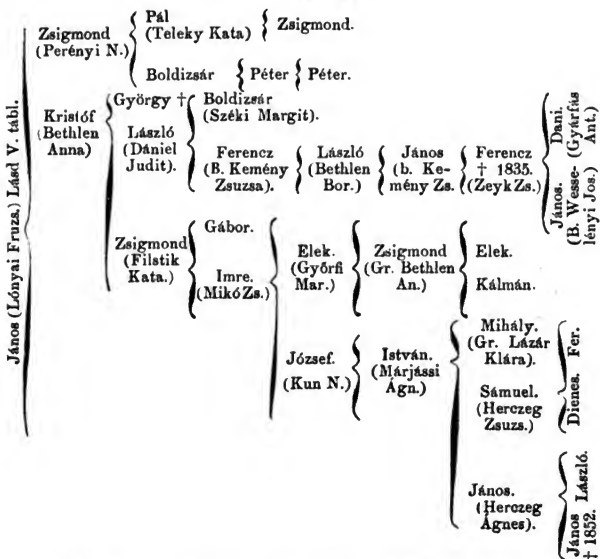 János (Lónyai Fruzs.) Lásd V. tábl.
Zsigmond
(Perényi N.)
Pál
(Teleky Kata)
Zsigmond.
Boldizsár
Péter
Péter.
Kristóf
(Bethlen
Anna)
György †
László
(Dániel
Judit).
Boldizsár
(Széki Margit).
Ferencz
(B. Kemény
Zsuzsa).
László
(Bethlen
Bor.)
János
(b. Ke-
mény Zs.
Ferencz
† 1835.
(Zeyk Zs.)
János. Dani.
(B. Wesse- (Gyárfás
lényi Jos.) Ant.)
Zsigmond
(Filstik
Kata.)
Gábor.
Imre.
(Mikó Zs.)
Elek.
(Győrfi
Mar.)
Zsigmond
(Gr. Bethlen
An.)
Elek.
Kálmán.
József.
(Kun N.)
István.
(Márjássi
Ágn.)
Mihály.
(Gr. Lázár
Klára).
Sámuel.
(Herczeg
Zsuzs.)
Dienes. Fer.
János.
(Herczeg
Ágnes).
János László.
† 1852.